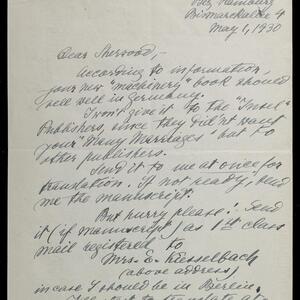 Bez. Hamburg
Bismarckallee 4
May 1, 1930
Dear Sherwood,-
According to information,
your new "machinery" book should
sell well in Germany.
I won't give it to the "Insel"
Publishers, since they didn't want
your "Many Marriages" but to
other publishers.
Send it to me at once for
translation. If not ready, send
me the manuscript.
But hurry please! Send
it (if manuscript) as 1st class
mail registered to
Mrs. E. Kesselbach
(above address)
in case I should be in Berlin.